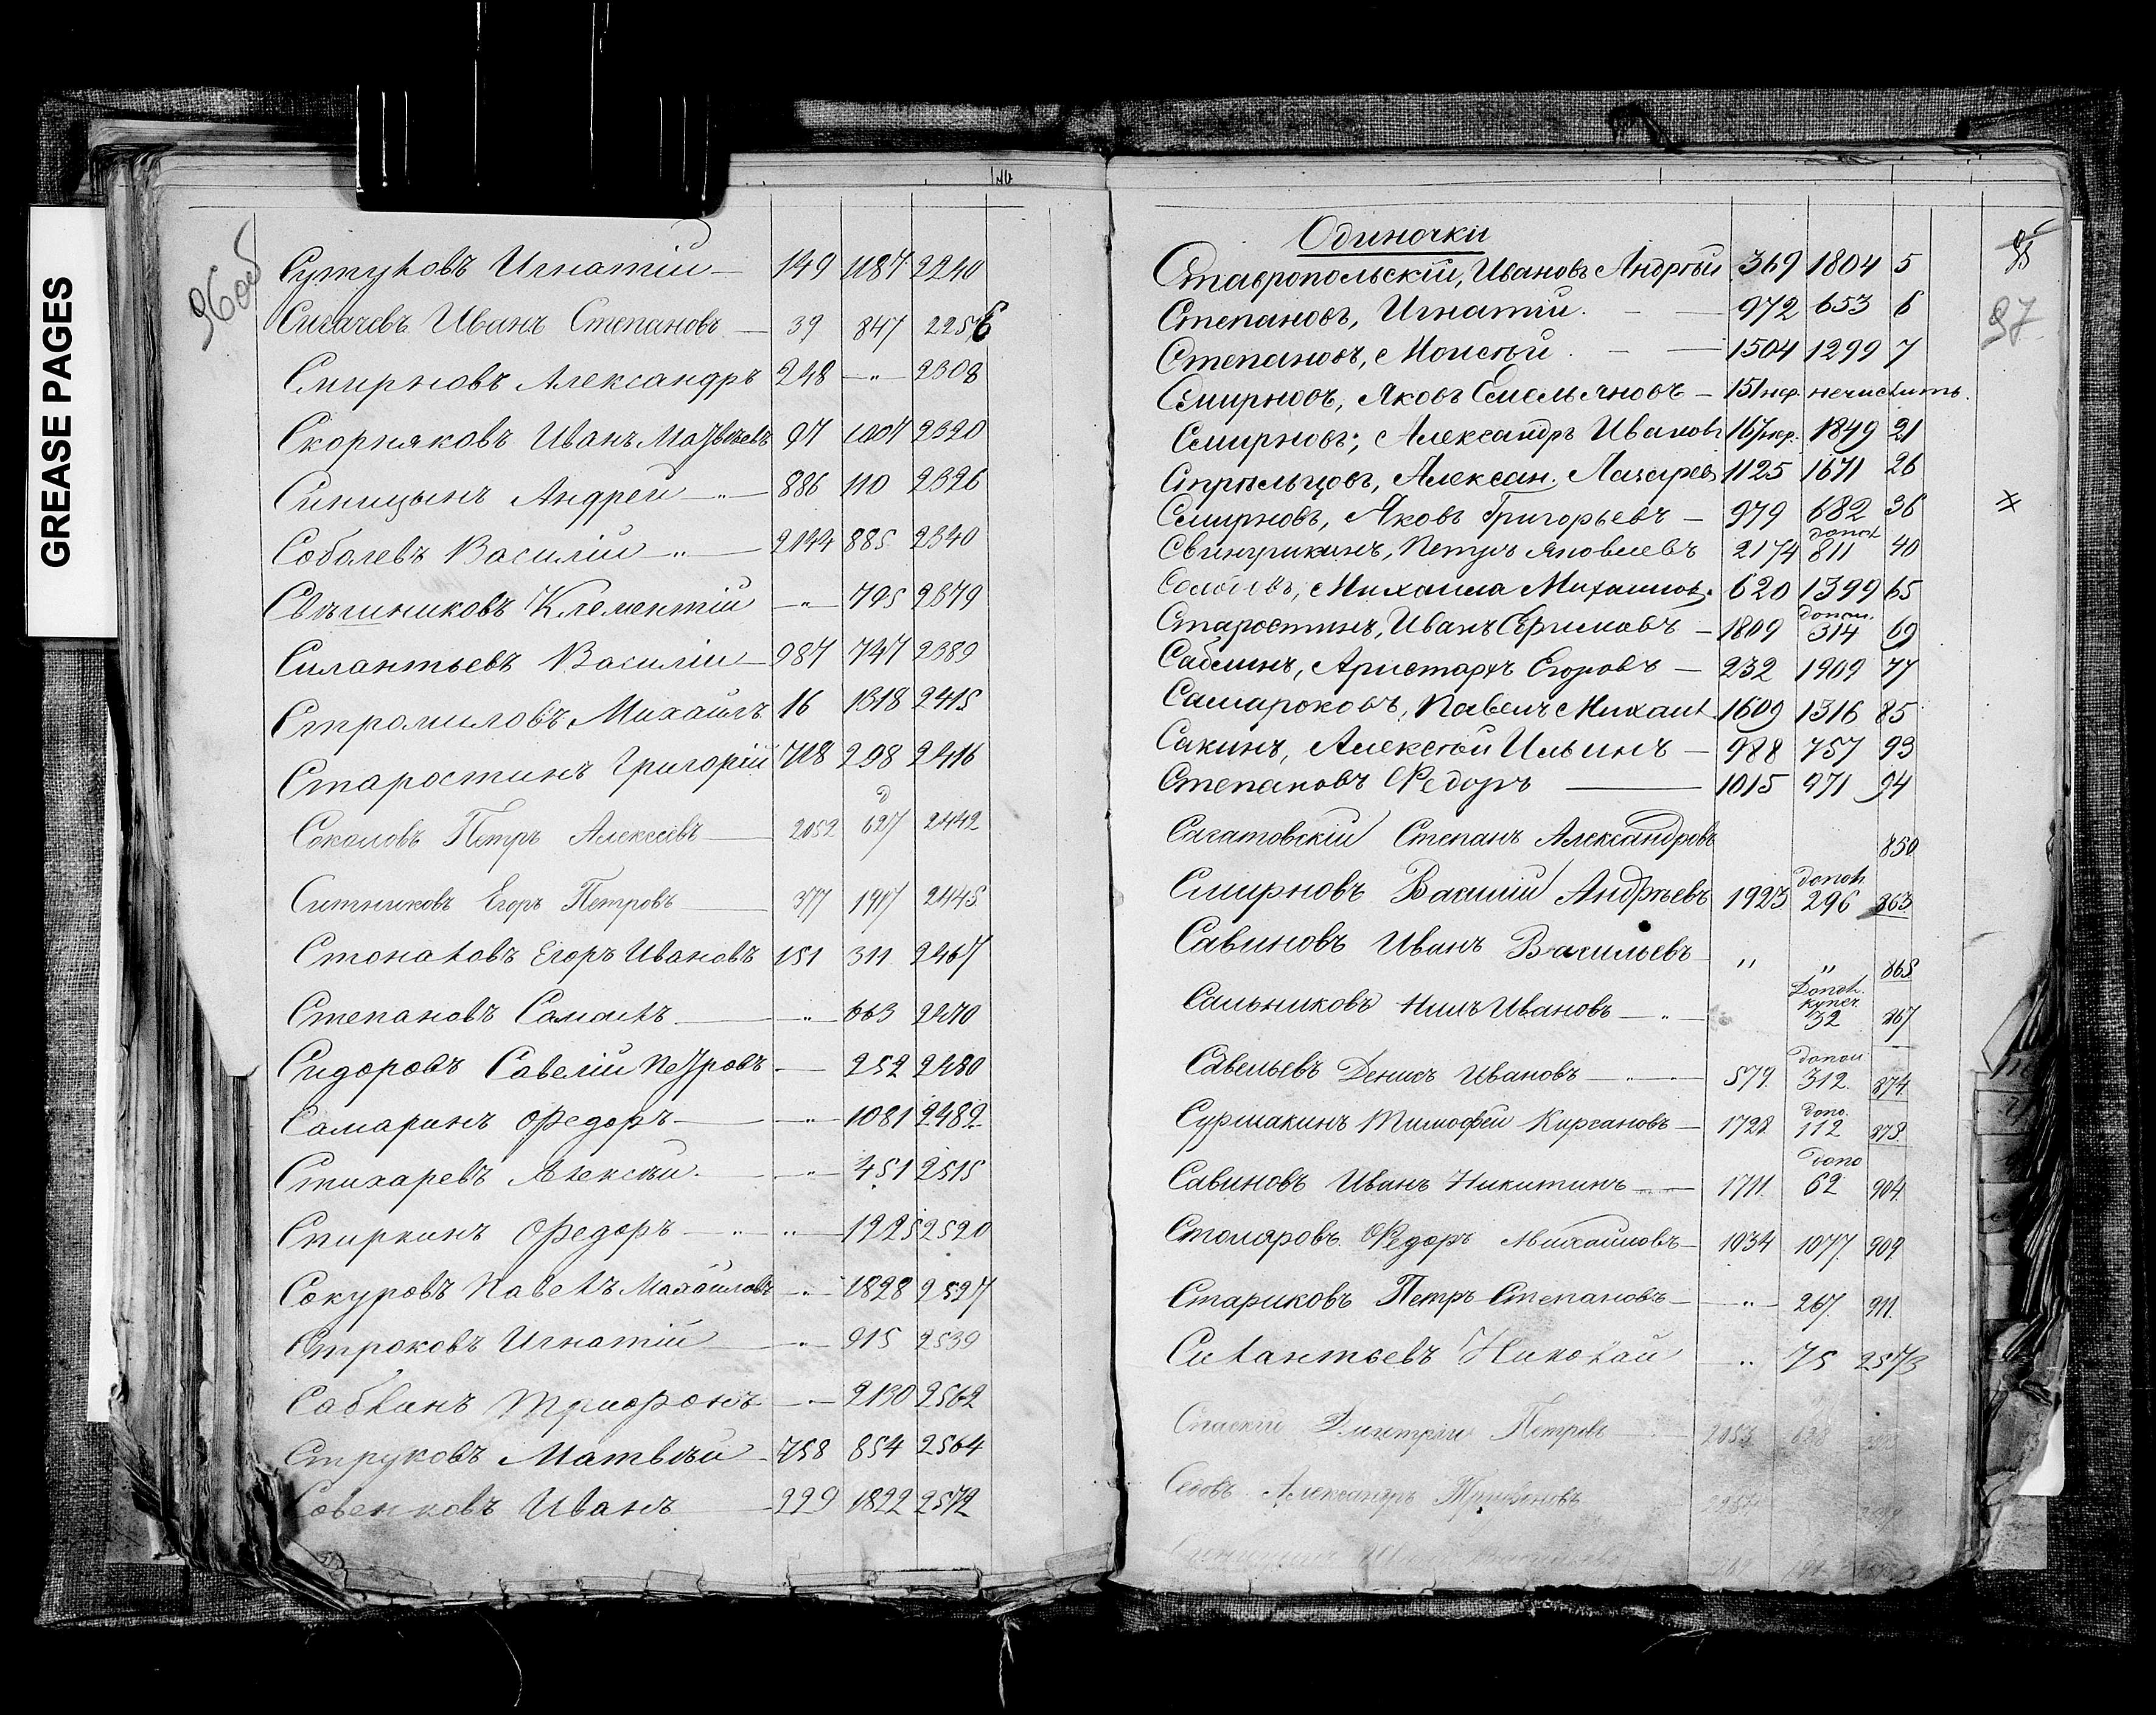 GREASE PAGES
96 об
Сутуловъ Игнатій — 149 1187 2240
Сигачевъ Иванъ Степановъ — 39 847 2256
Смирновъ Александръ 248 — " — 2308
Скорняковъ Иванъ Матвѣевъ 97 1007 2320
Синицынъ Андрей — " — 886 110 2326
Соболевъ Василій " — 2144 885 2340
Свѣшниковъ Клементій — " — 795 2379
Силантьевъ Василій — 987 747 2389
Стромиловъ Михаилъ 16 1318 2415
Старостинъ Григорій 708 298 2416
Соколовъ Петръ Алексеевъ — 2052 д 627 2442
Ситниковъ Егоръ Петровъ — 377 1907 2445
Стоналовъ Егоръ Ивановъ 151 311 2467
Степановъ — " — 663 2470
Сидоровъ Савелій Петровъ — 252 2480
Самаринъ Федоръ — " — 1081 2489
Стихаревъ Алексѣй — " — 451 2515
Спиркинъ Федоръ — " — " — 1225 2520
Сокуровъ Павелъ Михайловъ — " — 1828 2527
Строковъ Игнатій — " — 915 2539
Саблинъ Трифонъ — " — 2130 2562
Струковъ Матвѣй — 758 854 2564
Совенковъ Иванъ — 229 1822 2572
Одиночки
97
Ставропольскій, Ивановъ Андрѣй 369 1804 5
Степановъ, Игнатій. — 972 653 6
Степановъ, Моисѣй. — 1504 1299 7
Смирновъ, Яковъ Емельяновъ — 151 нер. нечислить.
Смирновъ, Александръ Ивановъ 167 нер. 1849 21
Стрѣльцовъ, Алексан. Лазарев 1125 1671 26
Смирновъ, Яковъ Григорьевъ — 979 682 36
Петръ Яковлевъ 2174 допол 811 40
Соловьевъ, Михаила Михаилов. 620 1399 65
Старостинъ, Иванъ Ефимовъ — 1809 допол. 314 69
Саблинъ, Аристархъ Егоровъ — 232 1909 77
Самароковъ, Павелъ Михаил. 1609 1316 85
Сакинъ, Алексѣй Ильинъ — 988 757 93
Степановъ Федоръ — 1015 971 94
Сагатовскій Степанъ Александровъ 850
Смирновъ Василій Андрѣевъ 1923 допол. 296 863
Савиновъ Иванъ Васильевъ " " 865
Сальниковъ Нилъ Ивановъ — " — Допол. купеч. 32 867
Савельевъ Денисъ Ивановъ — " — 579. допол 312. 874
Сурмакинъ Тимофей Кирсановъ — 1728 допо. 112 878.
Савиновъ Иванъ Никитинъ — 1711. допо 62 904
Столяровъ Федоръ Михайловъ — 1034 1077 909
Стариковъ Петръ Степановъ — " — 267. 911.
Силантьевъ Николай " 75 2573
Спаскій Дмитрій Петровъ 2053 628
Седовъ Александръ Трифоновъ